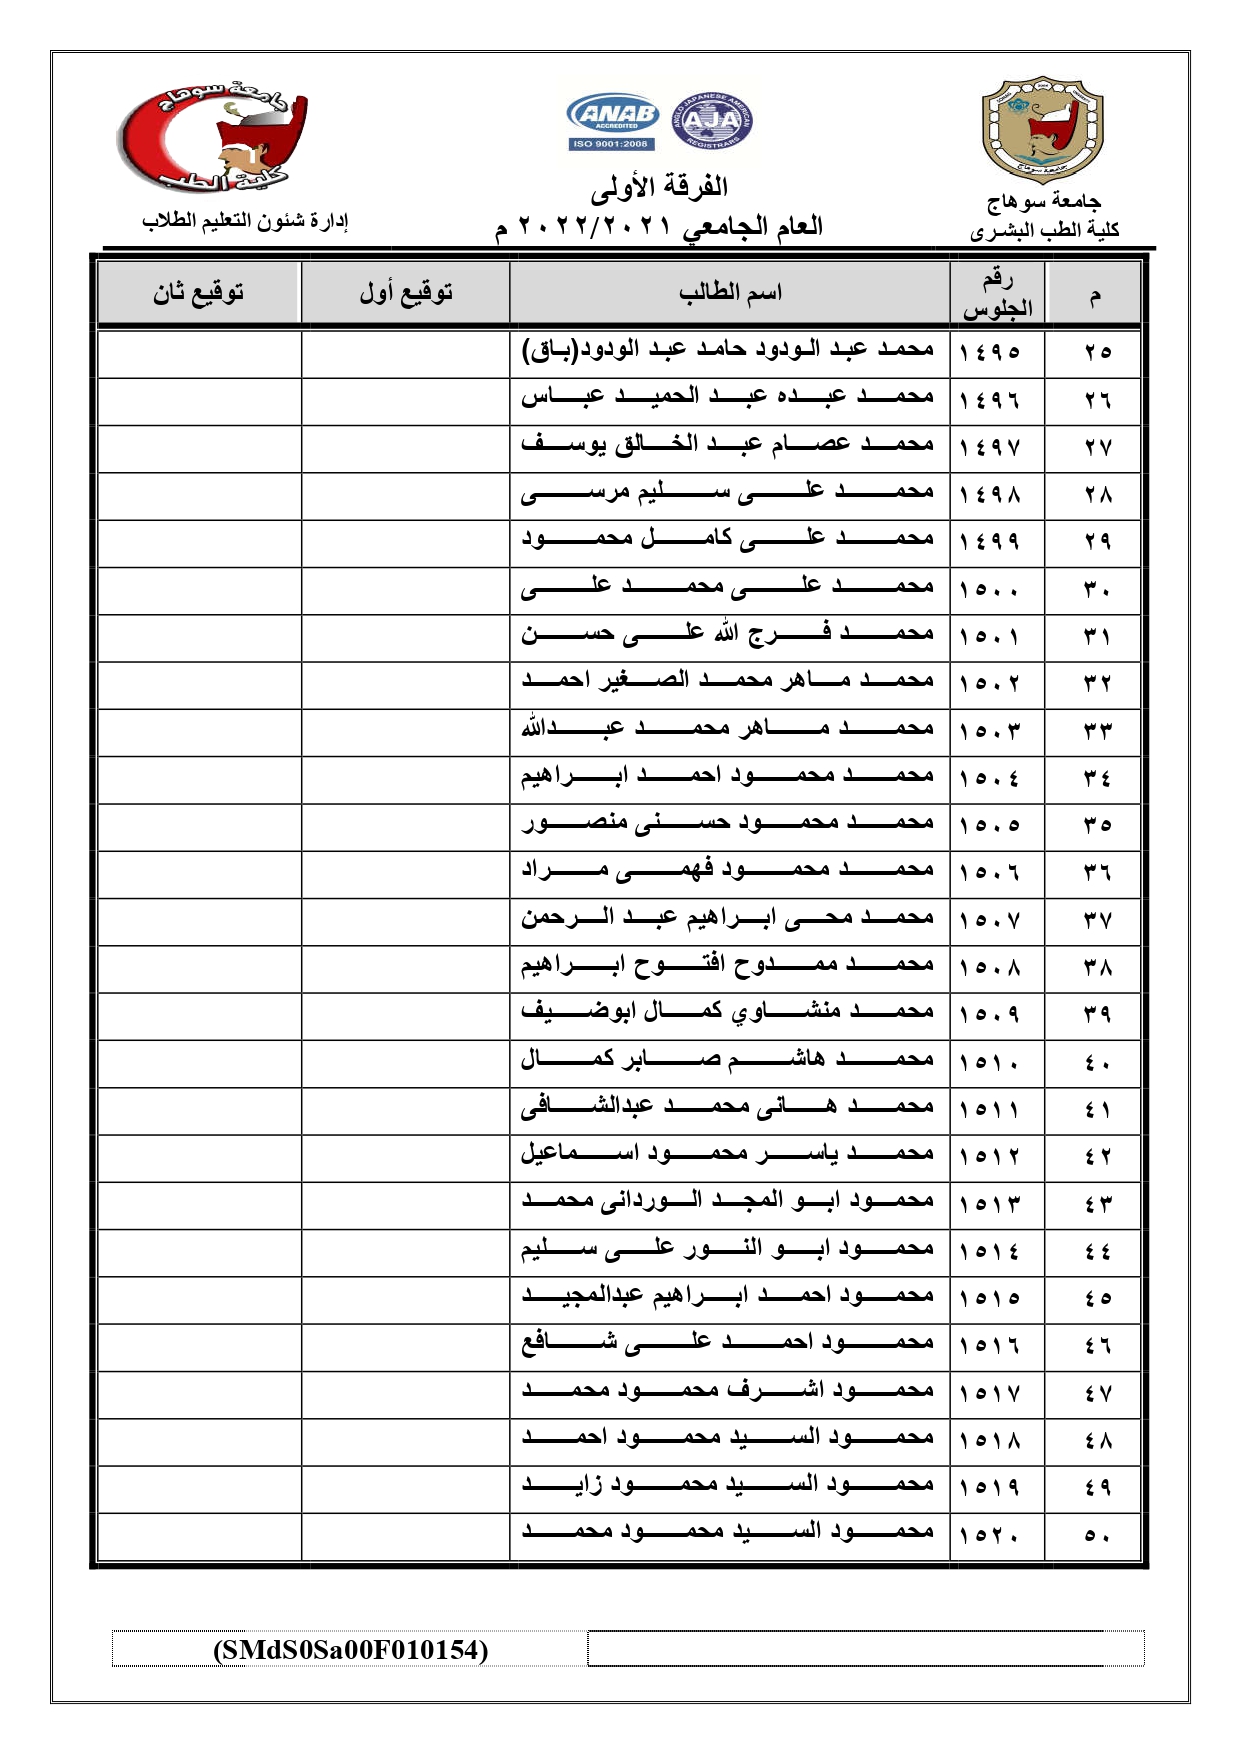 جامعة سوهاج
كلية الطب
ANAB
ACCREDITED
ISO 9001:2008
ANGLO JAPANESE AMERICAN
AJA
REGISTRARS
جامعة سوهاج
جامعة سوهاج
كلية الطب البشرى
الفرقة الأولى
العام الجامعي ٢٠٢٢/٢٠٢١ م
إدارة شئون التعليم الطلاب
م رقم الجلوس اسم الطالب توقيع أول توقيع ثان
٢٥ ١٤٩٥ محمد عبد الودود حامد عبد الودود(باق)
٢٦ ١٤٩٦ محمد عبده عبد الحميد عباس
٢٧ ١٤٩٧ محمد عصام عبد الخالق يوسف
٢٨ ١٤٩٨ محمد على سليم مرسى
٢٩ ١٤٩٩ محمد على كامل محمود
٣٠ ١٥٠٠ محمد على محمد على
٣١ ١٥٠١ محمد فرج الله على حسن
٣٢ ١٥٠٢ محمد ماهر محمد الصغير احمد
٣٣ ١٥٠٣ محمد ماهر محمد عبدالله
٣٤ ١٥٠٤ محمد محمود احمد ابراهيم
٣٥ ١٥٠٥ محمد محمود حسنى منصور
٣٦ ١٥٠٦ محمد محمود فهمى مراد
٣٧ ١٥٠٧ محمد محى ابراهيم عبد الرحمن
٣٨ ١٥٠٨ محمد ممدوح افتوح ابراهيم
٣٩ ١٥٠٩ محمد منشاوي كمال ابوضيف
٤٠ ١٥١٠ محمد هاشم صابر كمال
٤١ ١٥١١ محمد هانى محمد عبدالشافى
٤٢ ١٥١٢ محمد ياسر محمود اسماعيل
٤٣ ١٥١٣ محمود ابو المجد الوردانى محمد
٤٤ ١٥١٤ محمود ابو النور على سليم
٤٥ ١٥١٥ محمود احمد ابراهيم عبدالمجيد
٤٦ ١٥١٦ محمود احمد على شافع
٤٧ ١٥١٧ محمود اشرف محمود محمد
٤٨ ١٥١٨ محمود السيد محمود احمد
٤٩ ١٥١٩ محمود السيد محمود زايد
٥٠ ١٥٢٠ محمود السيد محمود محمد
(SMdS0Sa00F010154)